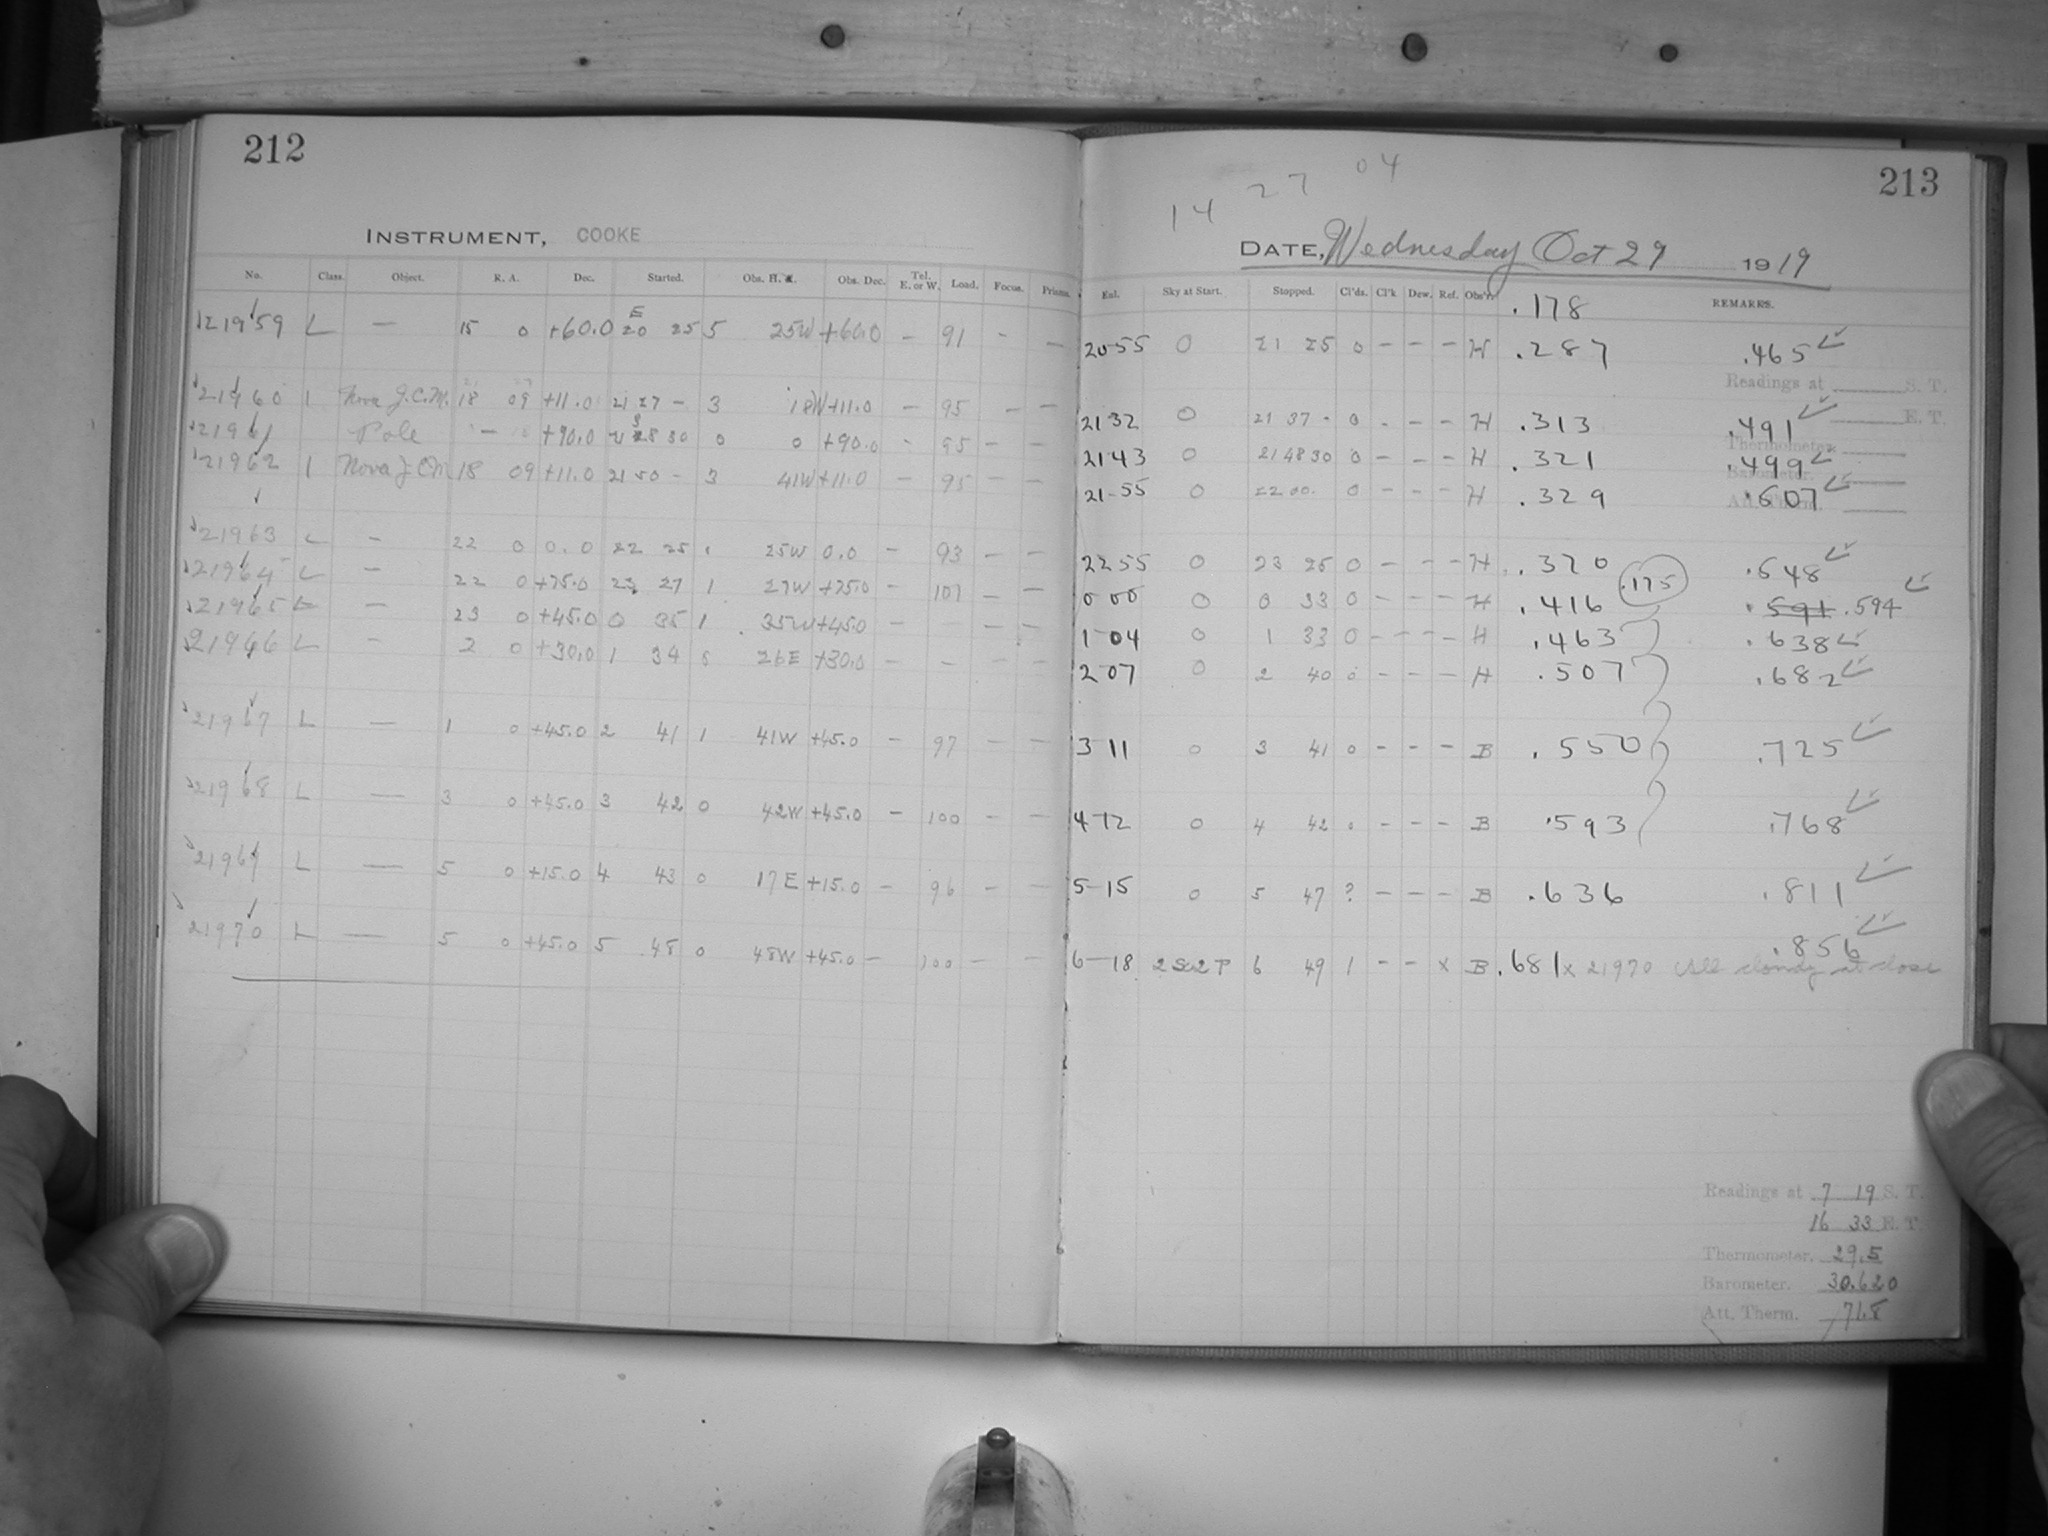 212
INSTRUMENT, COOKE
No. Class. Object. R. A. Dec. Started. Obs. H. A. Obs. Dec. Tel. E. or W. Load. Focus. Prisms.
21959 L — 15 0 +60.0 20 25 5 25W +60.0 - 91 - -
21960 1 Nova J.C.M. 18 09 +11.0 21 27 - 3 18W +11.0 - 95 - -
21961 Pole - +90.0 21 38 30 0 0 +90.0 - 95 - -
21962 1 Nova J.C.M. 18 09 +11.0 21 50 - 3 41W +11.0 - 95 - -
21963 L - 22 0 0.0 22 25 1 25W 0.0 - 93 - -
21964 L - 22 0 +75.0 23 27 1 27W +75.0 - 107 - -
21965 L - 23 0 +45.0 0 35 1 35W +45.0 - - -
21966 L - 2 0 +30.0 1 34 5 26E +30.0 - - - -
21967 L — 1 0 +45.0 2 41 1 41W +45.0 - 97 - -
21968 L — 3 0 +45.0 3 42 0 42W +45.0 - 100 - -
21969 L — 5 0 +15.0 4 43 0 17E +15.0 - 96 - -
21970 L — 5 0 +45.0 5 48 0 48W +45.0 - 100 - -
213
14 27 04
DATE, Wednesday Oct 29 1919
Exl. Sky at Start. Stopped. Cl'ds. Cl'k Dew. Ref. Obs'r. .178 REMARKS.
20-55 0 21 25 0 - - - H .287 .465
Readings at S. T.
E. T.
21-32 0 21 37 - 0 - - - H .313 .491
Thermometer.
21-43 0 21 48 30 0 - - - H .321 .499
Barometer.
21-55 0 22 00. 0 - - - H .329 .507
Att. Therm.
22 55 0 23 25 0 - - - H .370 .548
.175
0 00 0 0 33 0 - - - H .416 .591 .594
1-04 0 1 33 0 - - - - H .463 .638
2 07 0 2 40 0 - - - H .507 .682
3 11 0 3 41 0 - - - B .550 .725
4-12 0 4 42 0 - - - B .593 .768
5-15 0 5 47 ? - - - B .636 .811
.856
6-18 6 49 1 - - x B .681 x 21970 All cloudy at close
Readings at 7 19 S. T.
16 33 E. T.
Thermometer. 29.5
Barometer. 30.620
Att. Therm.